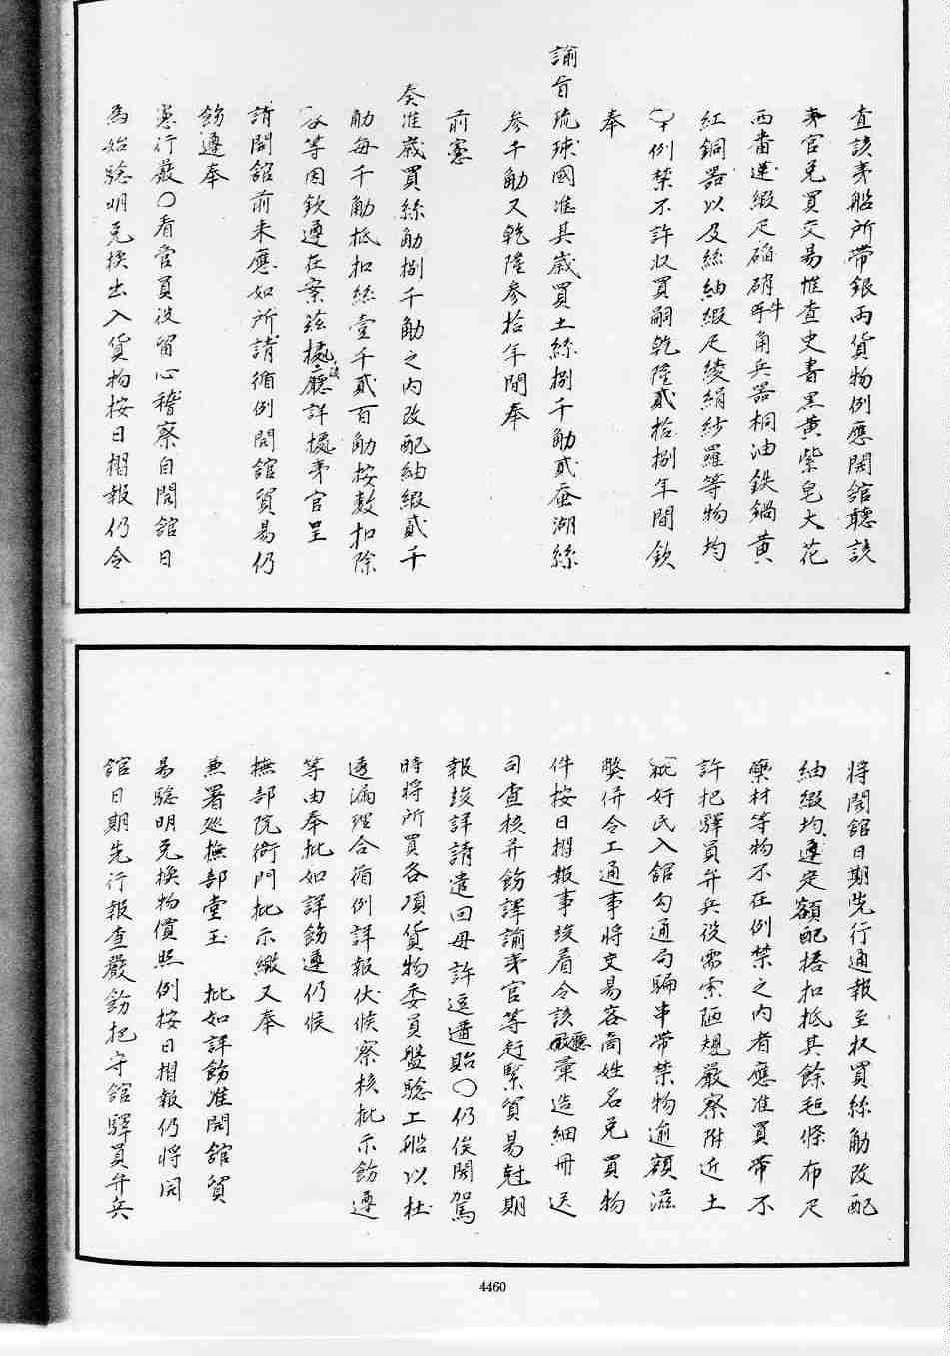 查該夷船所帶銀兩貨物例應開舘聽該
夷官兌買交易惟查史書黑黃紫皂大花
西番蓮緞疋硫硝牛角兵器桐油鉄鍋黃
紅銅器以及絲紬緞疋綾絹紗羅等物均
例禁不許收買嗣乾隆貳拾捌年間欽
奉
諭旨琉球國准其歲買土絲捌千觔貳蚕湖絲
參千觔又乾隆參拾年間奉
前憲
奏准歲買絲觔捌千觔之内改配紬緞貳千
觔每千觔抵扣絲壹千貳百觔按數扣除
等因欽遵在案茲據該廳詳據夷官呈
請開舘前来應如所請循例開舘貿易仍
飭遵奉
憲行嚴〇看當員役留心稽察自開舘日
為始驗明兌換出入貨物按日摺報仍令
將開舘日期先行通報至收買絲觔改配
紬緞均遵定額配搭扣抵其餘毛條布疋
藥材等物不在例禁之内者應准買帶不
許把驛員弁兵役需索陋規嚴察附近土
秕奸民入舘勾通局騙串帶禁物逾額滋
獘併令工通事將交易客商姓名兌買物
件按日摺報事竣着令該廳彙造細冊送
司查核并飭譯諭夷官等赶緊貿易尅期
報竣詳請遣回毋許逗遛貽〇仍俟開駕
時將所買各項貨物委員盤驗工船以杜
透漏理合循例詳報伏候察核批示飭遵
等由奉批如詳飭遵仍候
撫部院衙門批示繳又奉
兼署廵撫部堂玉　批如詳飭准開舘貿
易驗明兌換物價照例按日摺報仍將開
舘日期先行報查嚴飭把守舘驛員弁兵
4460